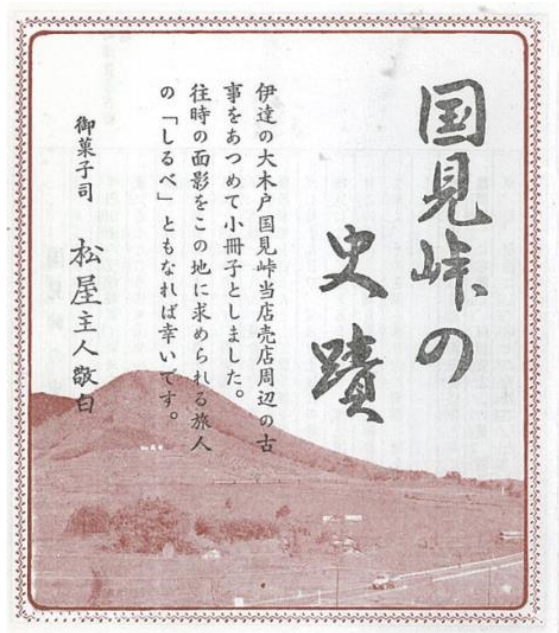 国見峠の
史蹟
伊達の大木戸国見峠当店売店周辺の古
事をあつめて小冊子としました。
往時の面影をこの地に求められる旅人
の「しるべ」ともなれば幸いです。
御菓子司 松屋主人敬白